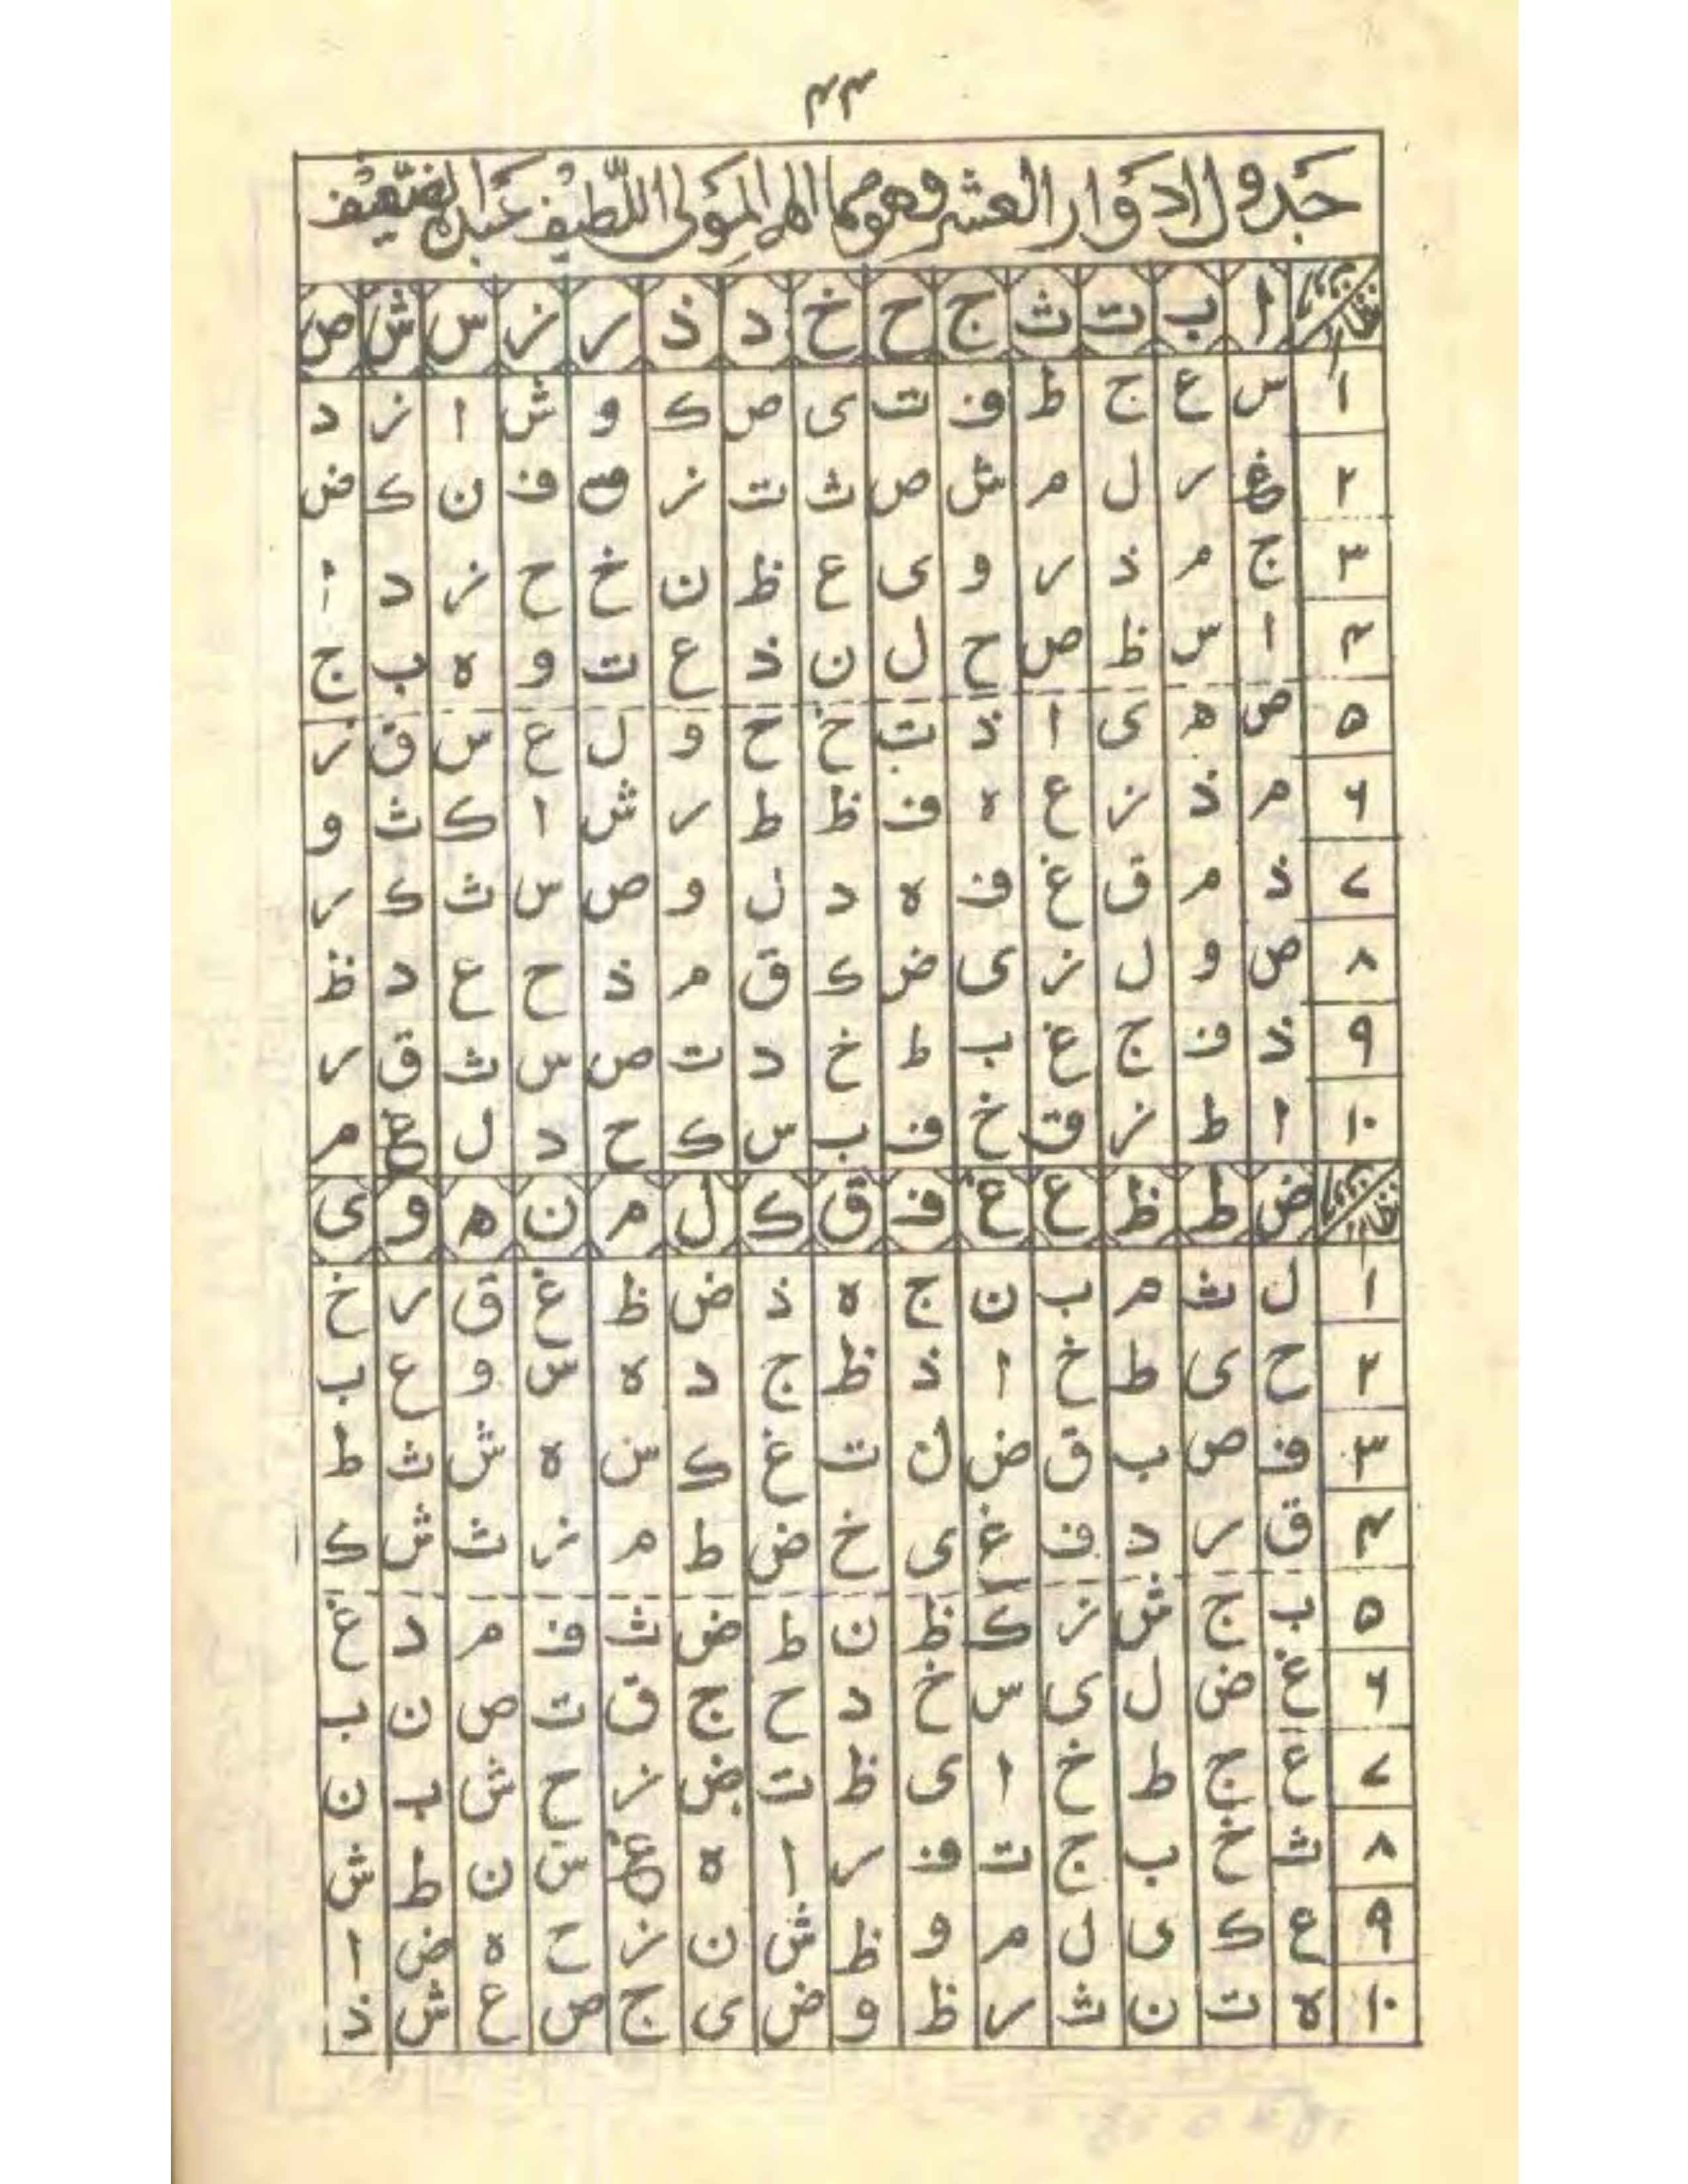 ٤٣
جدول ادوار العشر وهو مما الهم المولى اللطيف عبده الضعيف
ا ب ت ث ج ح خ د ذ ر ز س ش ص
١ س ع ج ط ف ت ى ص ك و ش ا ز د
٢ غ ر ل م ش ص ث ت ز ق ف ن ك ض
٣ ج م ذ ر و ى ع ظ ن خ ح ز د ا
٤ ا س ظ ص ح ل ن ذ ع ت و ه ب ج
٥ ص ه ى ا ذ ت خ ح و ل ع س ق ز
٦ م ذ ز ع ه ف ظ ط ر ش ا ك ث و
٧ ذ م ق غ ف ه د ل و ص س ث ك ر
٨ ص و ل ز ى ض ك ق م ذ ح ع د ظ
٩ ذ ف ج غ ب ط خ د ت ص س ث ق ر
١٠ ا ط ز ق خ ف ب س ك ح د ل غ م
ض ط ظ ع غ ف ق ك ل م ن ه و ى
١ ل ث م ب ن ج ه ذ ض ظ غ ق ر خ
٢ ح ى ط خ ا ذ ظ ج د ه س و ع ب
٣ ف ص ب ق ض ل ت غ ك س ه ش ث ط
٤ ق ر د ف غ ى خ ض ط م ز ث ش ك
٥ ب ج ش ز ك ظ ن ط ض ث ف م د غ
٦ غ ض ل ى س خ د ح ج ق ت ص ن ب
٧ ع ج ط خ ا ى ظ ت ض ز ح ش ب ن
٨ ث خ ب ج ت ف ر ا ه غ س ن ط ش
٩ ع ك ى ل م و ظ ش ن ز ح ه ض ا
١٠ ه ت ن ث ر ظ و ض ى ج ص ع ش ذ